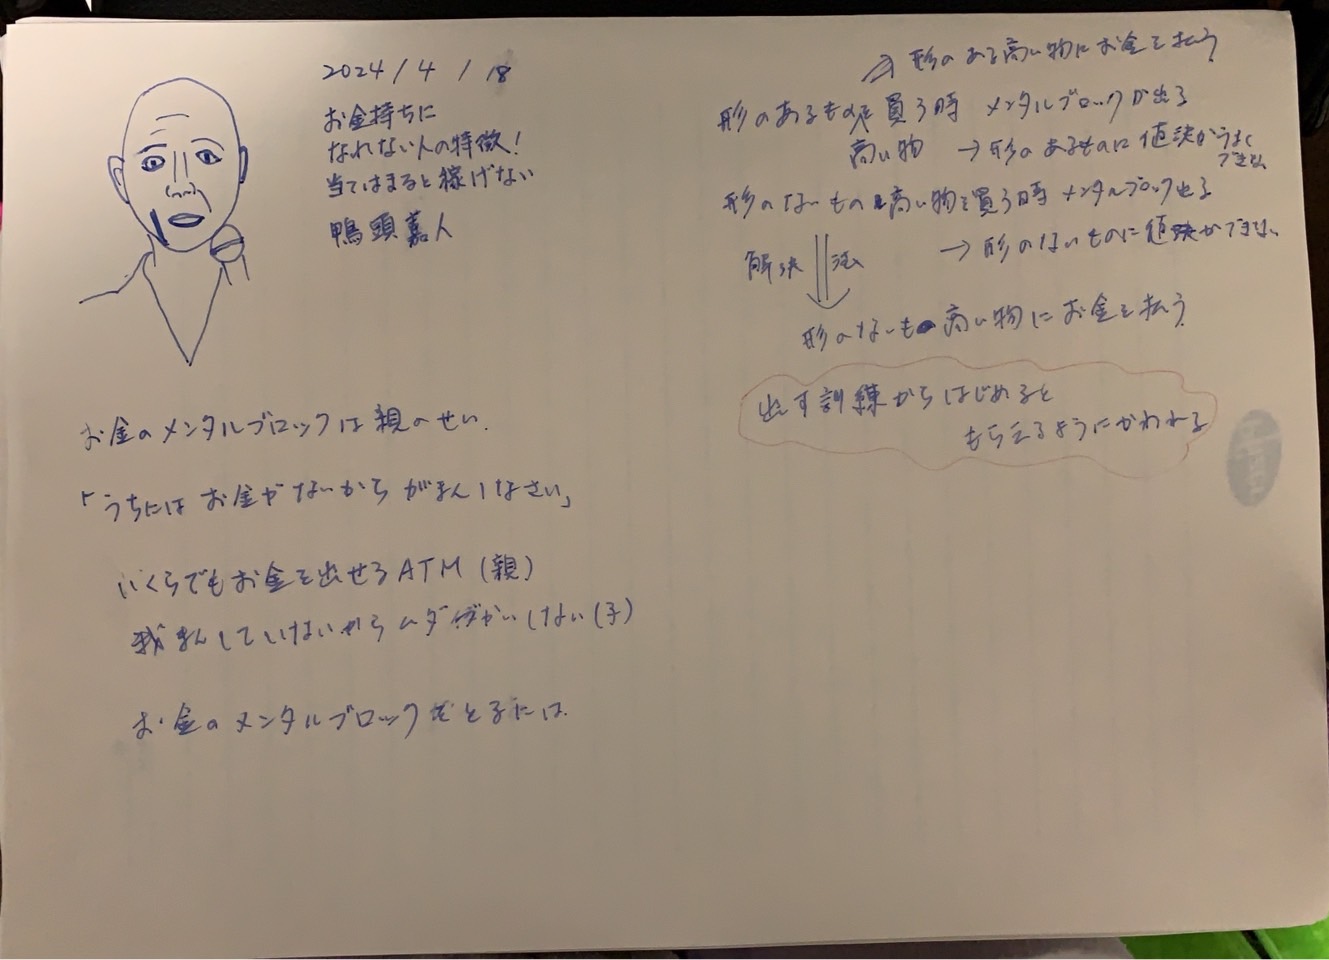 2024/4/18
お金持ちに
なれない人の特徴!
当てはまると稼げない
鴨頭嘉人
お金のメンタルブロックは親のせい.
「うちにはお金がないからがまんしなさい」
いくらでもお金を出せるATM(親)
我まんしていけないからムダづかいしない(子)
お金のメンタルブロックをとるには.
→ 形のある高い物にお金を払う
形のあるものを買う時 メンタルブロックが出る
高い物 → 形のあるものに値決がうまく
できない
形のないもの高い物を買う時 メンタルブロック出る
→ 形のないものに値決ができない
解決法
形のないもの高い物にお金を払う.
出す訓練からはじめると
もらえるようにかわれる